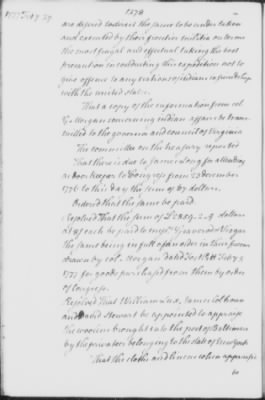 1378
are desired to direct the same to be undertaken
and executed by their frontier militia on terms
the most frugal and effectual taking the best
precaution in conducting this expedition not to
give offence to any nations of indians in friendship
with the united states.
That a copy of the information from col
G. Morgan concerning indian affairs be trans
mitted to the governor and council of Virginia
The committee on the treasury reported
That there is due to James long for attending
as door keeper to Congress from 23 december
1776 to this day the sum of 67 dollars.
Ordered that the same be paid.
Resolved That the sum of dollars
be paid to
the same being in full of an order in their favour
drawn by col. Morgan dated fort Pitt
1777 for goods purchased from them by order
of Congress.
Resolved That William Lux, James Calhoun
and David Stewart be appointed to appraise
the woolens brought into the port of Baltimore
by the privateer belonging to the state of New york
That the cloths and linens when appraise
be